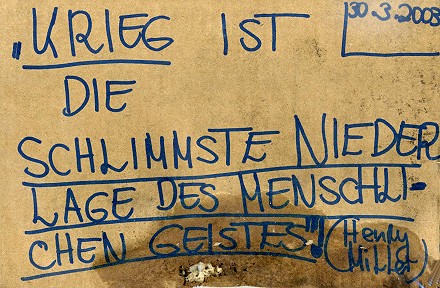 „KRIEG IST
30.3.2003
DIE
SCHLIMMSTE NIEDER
LAGE DES MENSCHLI-
CHEN GEISTES"!
(Henry
Miller)